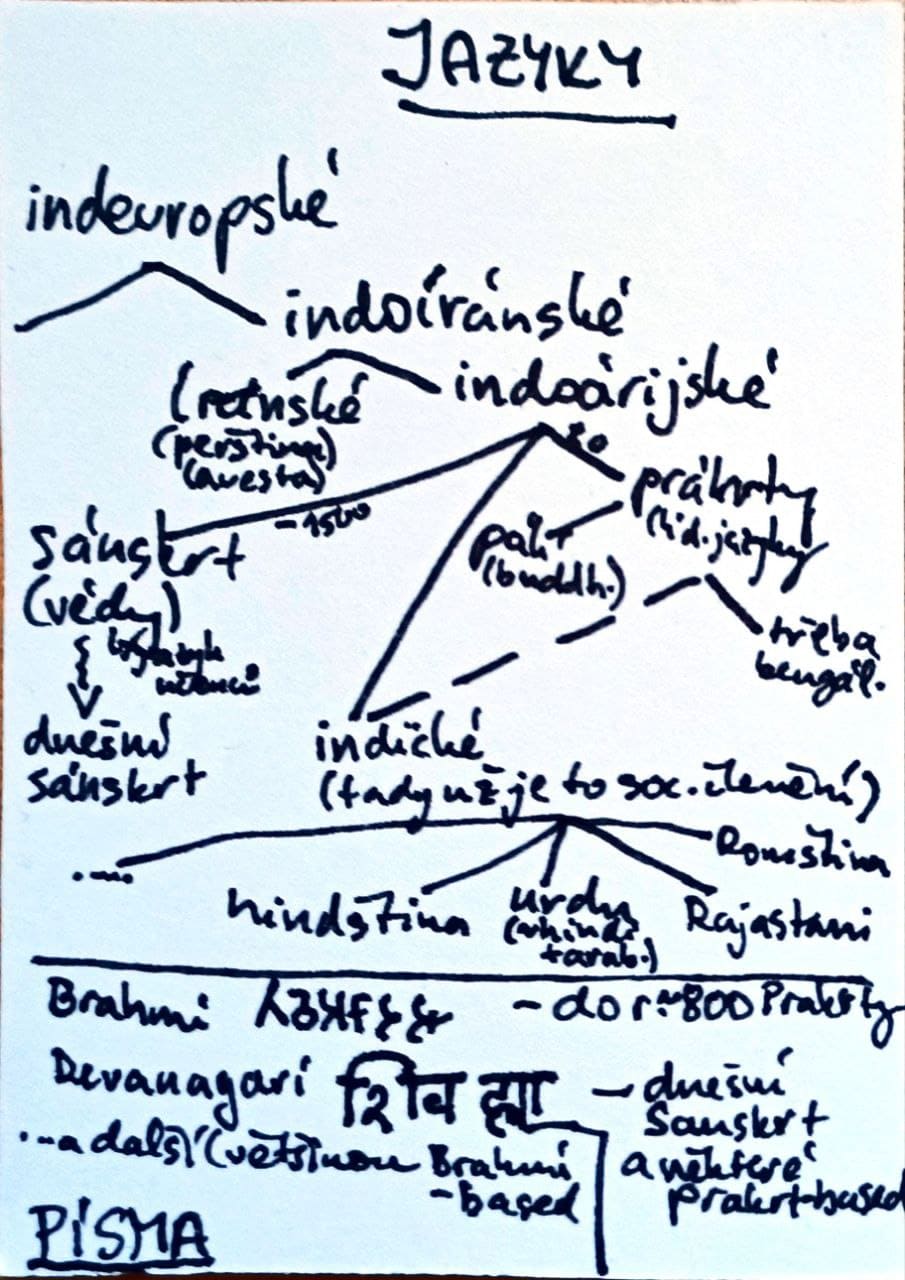 JAZYKY
indeuropské
indoíránské
indoárijské
(perština)
(avesta)
prákrty
(lid. jazyky
-1500
sánskrt
(védy)
(buddh.)
třeba
bengál.
dnešní
sánskrt
indické
(tady už je to soc. členění)
....
Romština
hindština
urdu
Rajastani
(~hindi
+arab.)
Brahmi
- do r ~800 Prakrty
Devanagarí
शिव
- dnešní
Sanskrt
...a další (většinou Brahmi
-based
a některé
prakrt-based
PÍSMA